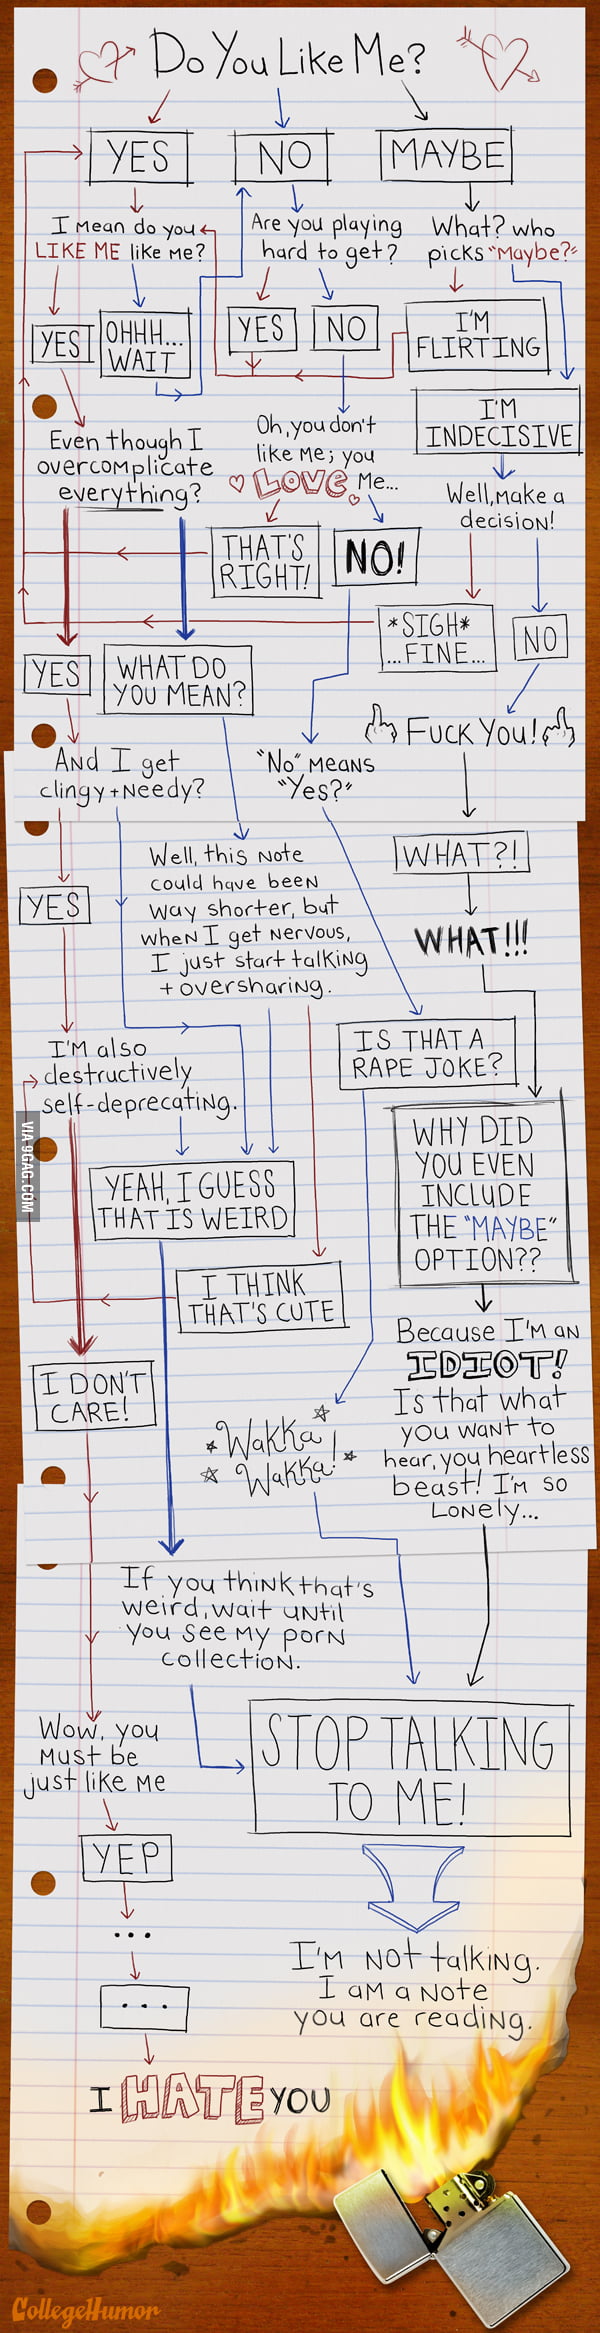 Do You Like Me?
YES
NO
MAYBE
I mean do you
LIKE ME like me?
Are you playing
hard to get?
What? who
picks "Maybe?"
YES
OHHH...
WAIT
YES
NO
I'M
FLIRTING
I'M
INDECISIVE
Even though I
overcomplicate
everything?
Oh, you don't
like me; you
LOVE me...
Well, make a
decision!
THAT'S
RIGHT!
NO!
*SIGH*
...FINE...
NO
YES
WHAT DO
YOU MEAN?
Fuck You!
And I get
clingy + needy?
"No" means
"Yes?"
WHAT?!
Well, this note
could have been
way shorter, but
when I get nervous,
I just start talking
+ oversharing.
YES
WHAT!!!
IS THAT A
RAPE JOKE?
I'm also
destructively
self-deprecating.
WHY DID
YOU EVEN
INCLUDE
THE "MAYBE"
OPTION??
YEAH, I GUESS
THAT IS WEIRD
I THINK
THAT'S CUTE
Because I'm an
IDIOT!
Is that what
you want to
hear, you heartless
beast! I'm so
lonely...
I DON'T
CARE!
Wakka
Wakka!
If you think that's
weird, wait until
you see my porn
collection.
STOP TALKING
TO ME!
Wow, you
must be
just like me
YEP
...
...
I'm not talking.
I am a note
you are reading.
I HATE YOU
CollegeHumor
VIA 9GAG.COM